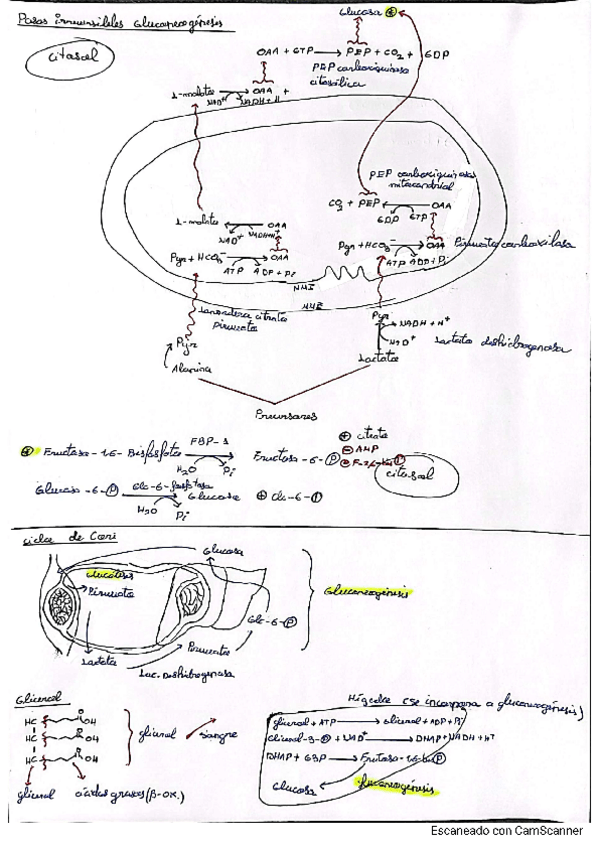 Pasos irreversibles Gluconeogénesis
citosol
Glucosa +
OAA + GTP → PEP + CO2 + GDP
PEP carboxiquinasa
citosólica
L-malato → OAA +
NAD+ NADH + H
PEP carboxiquinasa
mitocondrial
CO2 + PEP ← OAA
GDP GTP
L-malato ← OAA
NAD+ NADH+H+
Pyr + HCO3- → OAA
ATP ADP + Pi
Pyr + HCO3- → OAA Piruvato carboxilasa
ATP ADP + Pi
MMI
MME
Lanzadera citrato
piruvato
Pyr
Alanina
Pyr
NADH + H+
NAD+
Lactato deshidrogenasa
Lactato
Precursores
+ Fructosa-1,6-Bisfosfato → Fructosa-6-P
FBP-1
H2O Pi
+ citrato
- AMP
citosol
Glucosa-6-P → Glucosa + Glc-6-P
Glc-6-fosfatasa
H2O Pi
ciclo de Cori
Glucosa
Glucolisis
Piruvato
Gluconeogénesis
Glc-6-P
Piruvato
Lactato
Lac. Deshidrogenasa
Glicerol
HC
OH
HC
OH
HC
OH
glicerol
sangre
glicerol ácidos grasos (β-ox.)
Hígado (se incorpora a gluconeogénesis)
glicerol + ATP → glicerol + ADP + Pi
Glicerol-3-P + NAD+ → DHAP + NADH + H+
DHAP + G3P → Fructosa-1,6-bis P
Glucosa ← gluconeogénesis
Escaneado con CamScanner